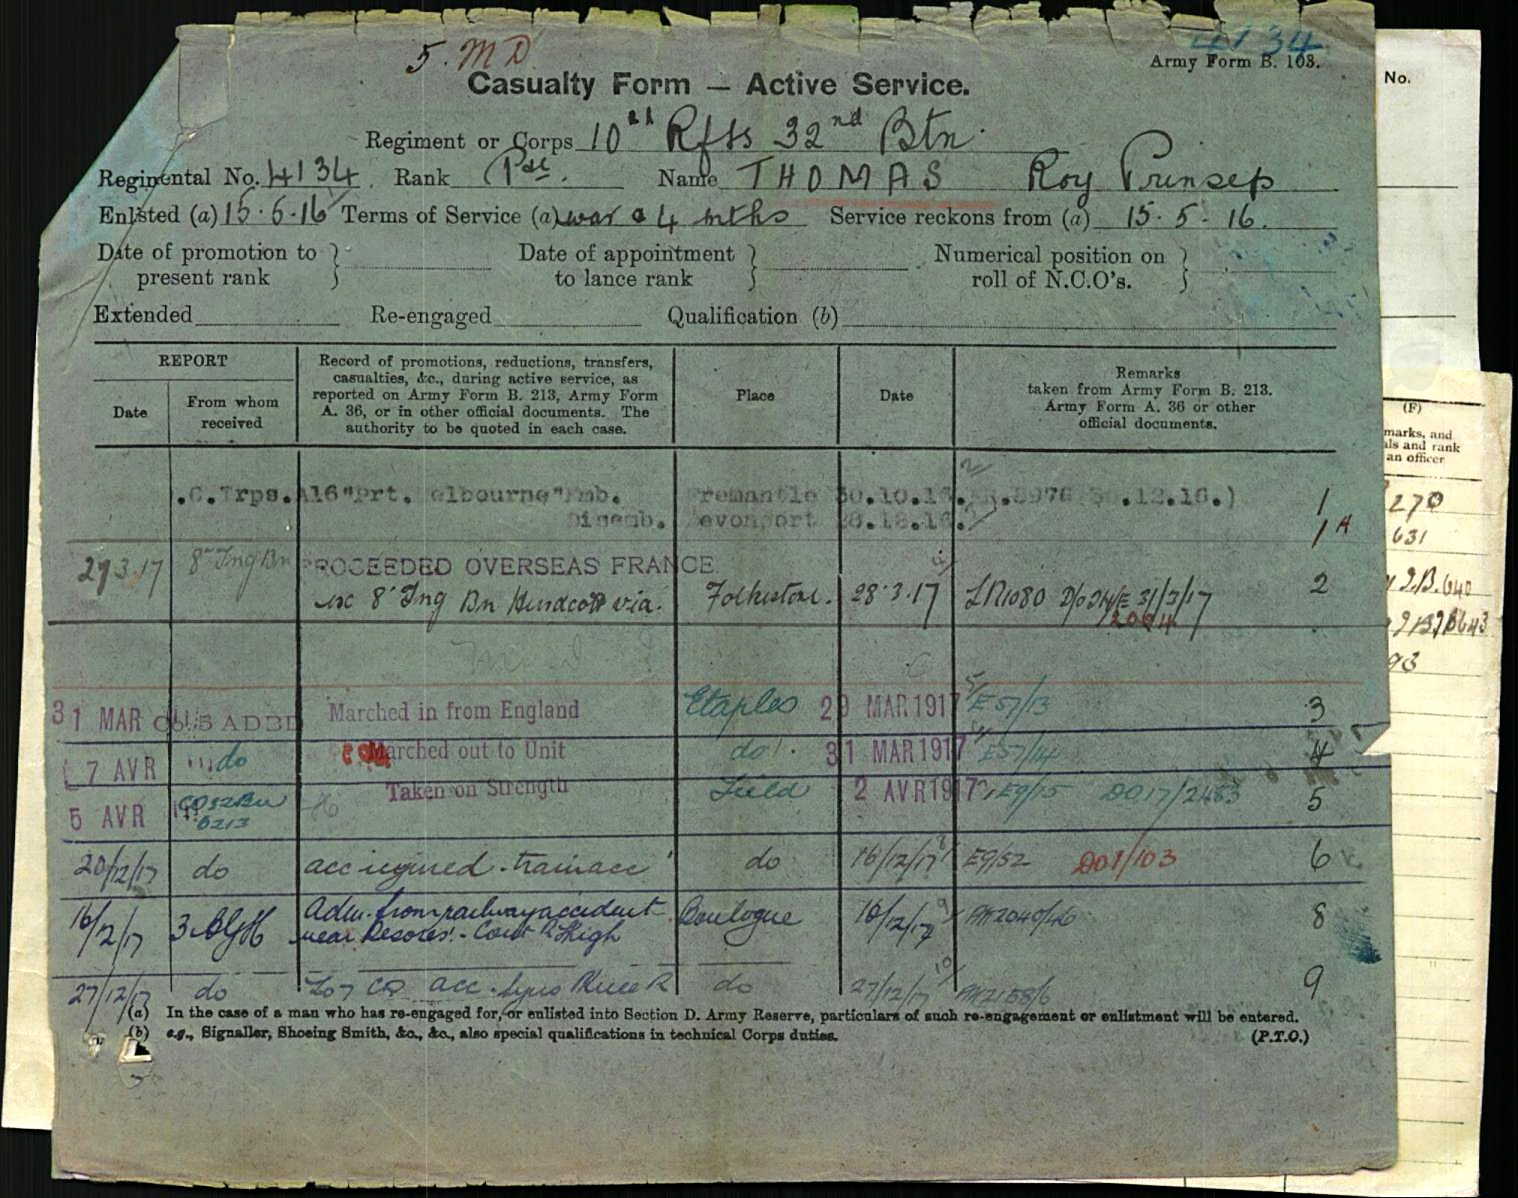 5. MD
4134
Army Form B. 103.
No.
Casualty Form — Active Service.
Regiment or Corps 10th Rfts 32nd Btn.
Regimental No. 4134 Rank Pte. Name THOMAS Roy Prinsep
Enlisted (a) 15.5.16 Terms of Service (a) war & 4 mths Service reckons from (a) 15.5.16.
Date of promotion to present rank } Date of appointment to lance rank } Numerical position on roll of N.C.O's. }
Extended Re-engaged Qualification (b)
REPORT
Date
From whom received
Record of promotions, reductions, transfers, casualties, &c., during active service, as reported on Army Form B. 213, Army Form A. 36, or in other official documents. The authority to be quoted in each case.
Place
Date
Remarks taken from Army Form B. 213. Army Form A. 36 or other official documents.
(F)
marks, and
als and rank
an officer
.C.Trps. A16 "Prt. elbourne" Emb. remantle 30.10.16. 1
Disemb. evonport 28.12.16. 1A
270
631
27 3.17 8 Tng Bn PROCEEDED OVERSEAS FRANCE
ex 8 Tng Bn Hurdcott via. Folkestone. 28.3.17 LR1080 31/3/17 2
93
31 MAR Marched in from England Etaples 29 MAR 1917 E57/13 3
7 AVR do Marched out to Unit do 31 MAR 1917 E57/14 4
5 AVR CO 32 Bn B213 Taken on Strength Field 2 AVR 1917 E9/15 DO17/2483 5
20/12/17 do acc injured - train acc do 16/12/17 E9/52 DO1/103 6
16/12/17 3 AGH Adm. from railway accident Boulogne 16/12/17 8
near Desvres - Cont R Thigh
27/12/17 do do 27/12/17 9
(a) In the case of a man who has re-engaged for, or enlisted into Section D. Army Reserve, particulars of such re-engagement or enlistment will be entered.
(b) e.g., Signaller, Shoeing Smith, &c., &c., also special qualifications in technical Corps duties. (P.T.O.)